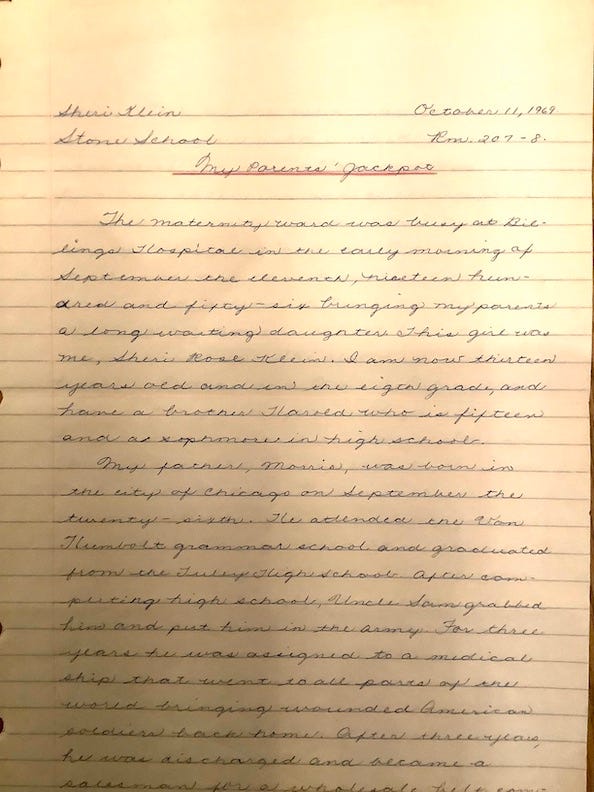 Sheri Klein October 11, 1969
Stone School Rm. 207-8.
My Parents' Jackpot
The maternity ward was busy at Bil-
lings Hospital in the early morning of
September the eleventh, nineteen hun-
dred and fifty-six bringing my parents
a long waiting daughter. This girl was
me, Sheri Rose Klein. I am now thirteen
years old and in the eigth grade, and
have a brother Harold who is fifteen
and a sophmore in high school.
My father, Morris, was born in
the city of Chicago on September the
twenty-sixth. He attended the Van
Humbolt grammar school and graduated
from the Tuley High School. After com-
pleting high school, Uncle Sam grabbed
him and put him in the army. For three
years he was assigned to a medical
ship that went to all parts of the
world bringing wounded American
soldiers back home. After three years,
he was discharged and became a
salesman for a wholesale com-